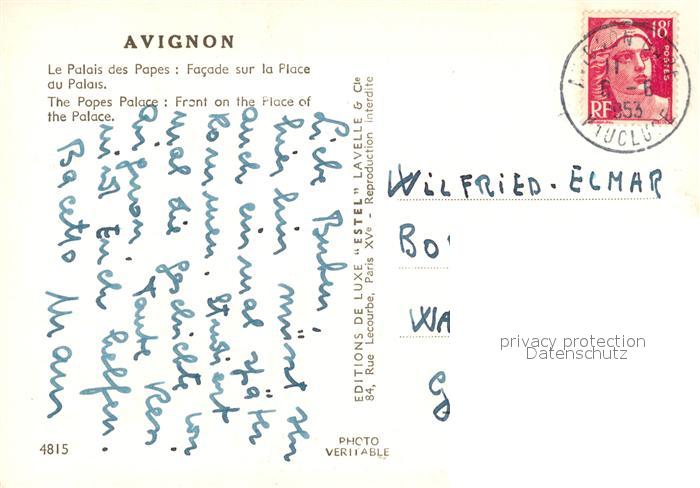 AVIGNON
Le Palais des Papes : Façade sur la Place
du Palais.
The Popes Palace : Front on the Place of
the Palace.
Liebe Buben,
hier hin müsst Ihr
auch einmal später
kommen. Studiert
mal die Geschichte von
Avignon. Tante
wird Euch helfen.
4815
EDITIONS DE LUXE "ESTEL" LAVELLE & Cie
84, Rue Lecourbe, Paris XVe - Reproduction interdite
PHOTO
VERITABLE
18F
POSTES
RF
AVIGNON
11
6-6
1953
VAUCLUSE
WILFRIED-ELMAR
BO
WA
privacy protection
Datenschutz